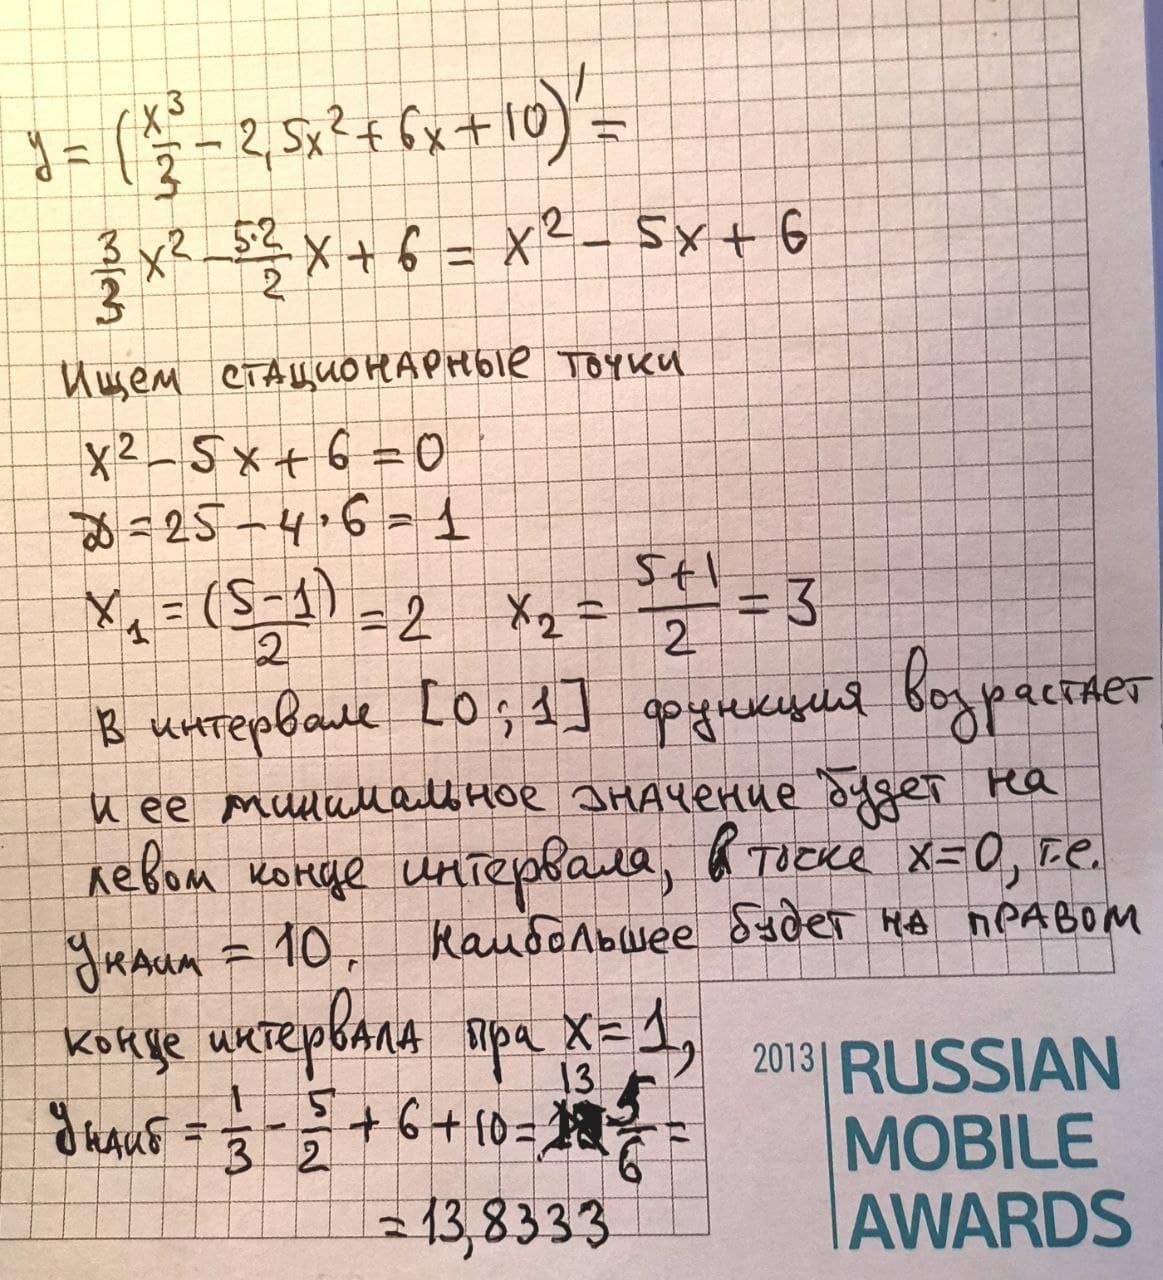 y = (x³/3 - 2,5x² + 6x + 10)' =
3/3 x² - 5·2/2 x + 6 = x² - 5x + 6
Ищем стационарные точки
x² - 5x + 6 = 0
D = 25 - 4·6 = 1
x₁ = (5-1)/2 = 2 x₂ = 5+1/2 = 3
В интервале [0;1] функция возрастает
и ее минимальное значение будет на
левом конце интервала, в тоске x=0, т.е.
yнаим = 10. Наибольшее будет на правом
конце интервала пра x=1,
yнаиб = 1/3 - 5/2 + 6 + 10 = 13 5/6 =
= 13,8333
2013 RUSSIAN
MOBILE
AWARDS